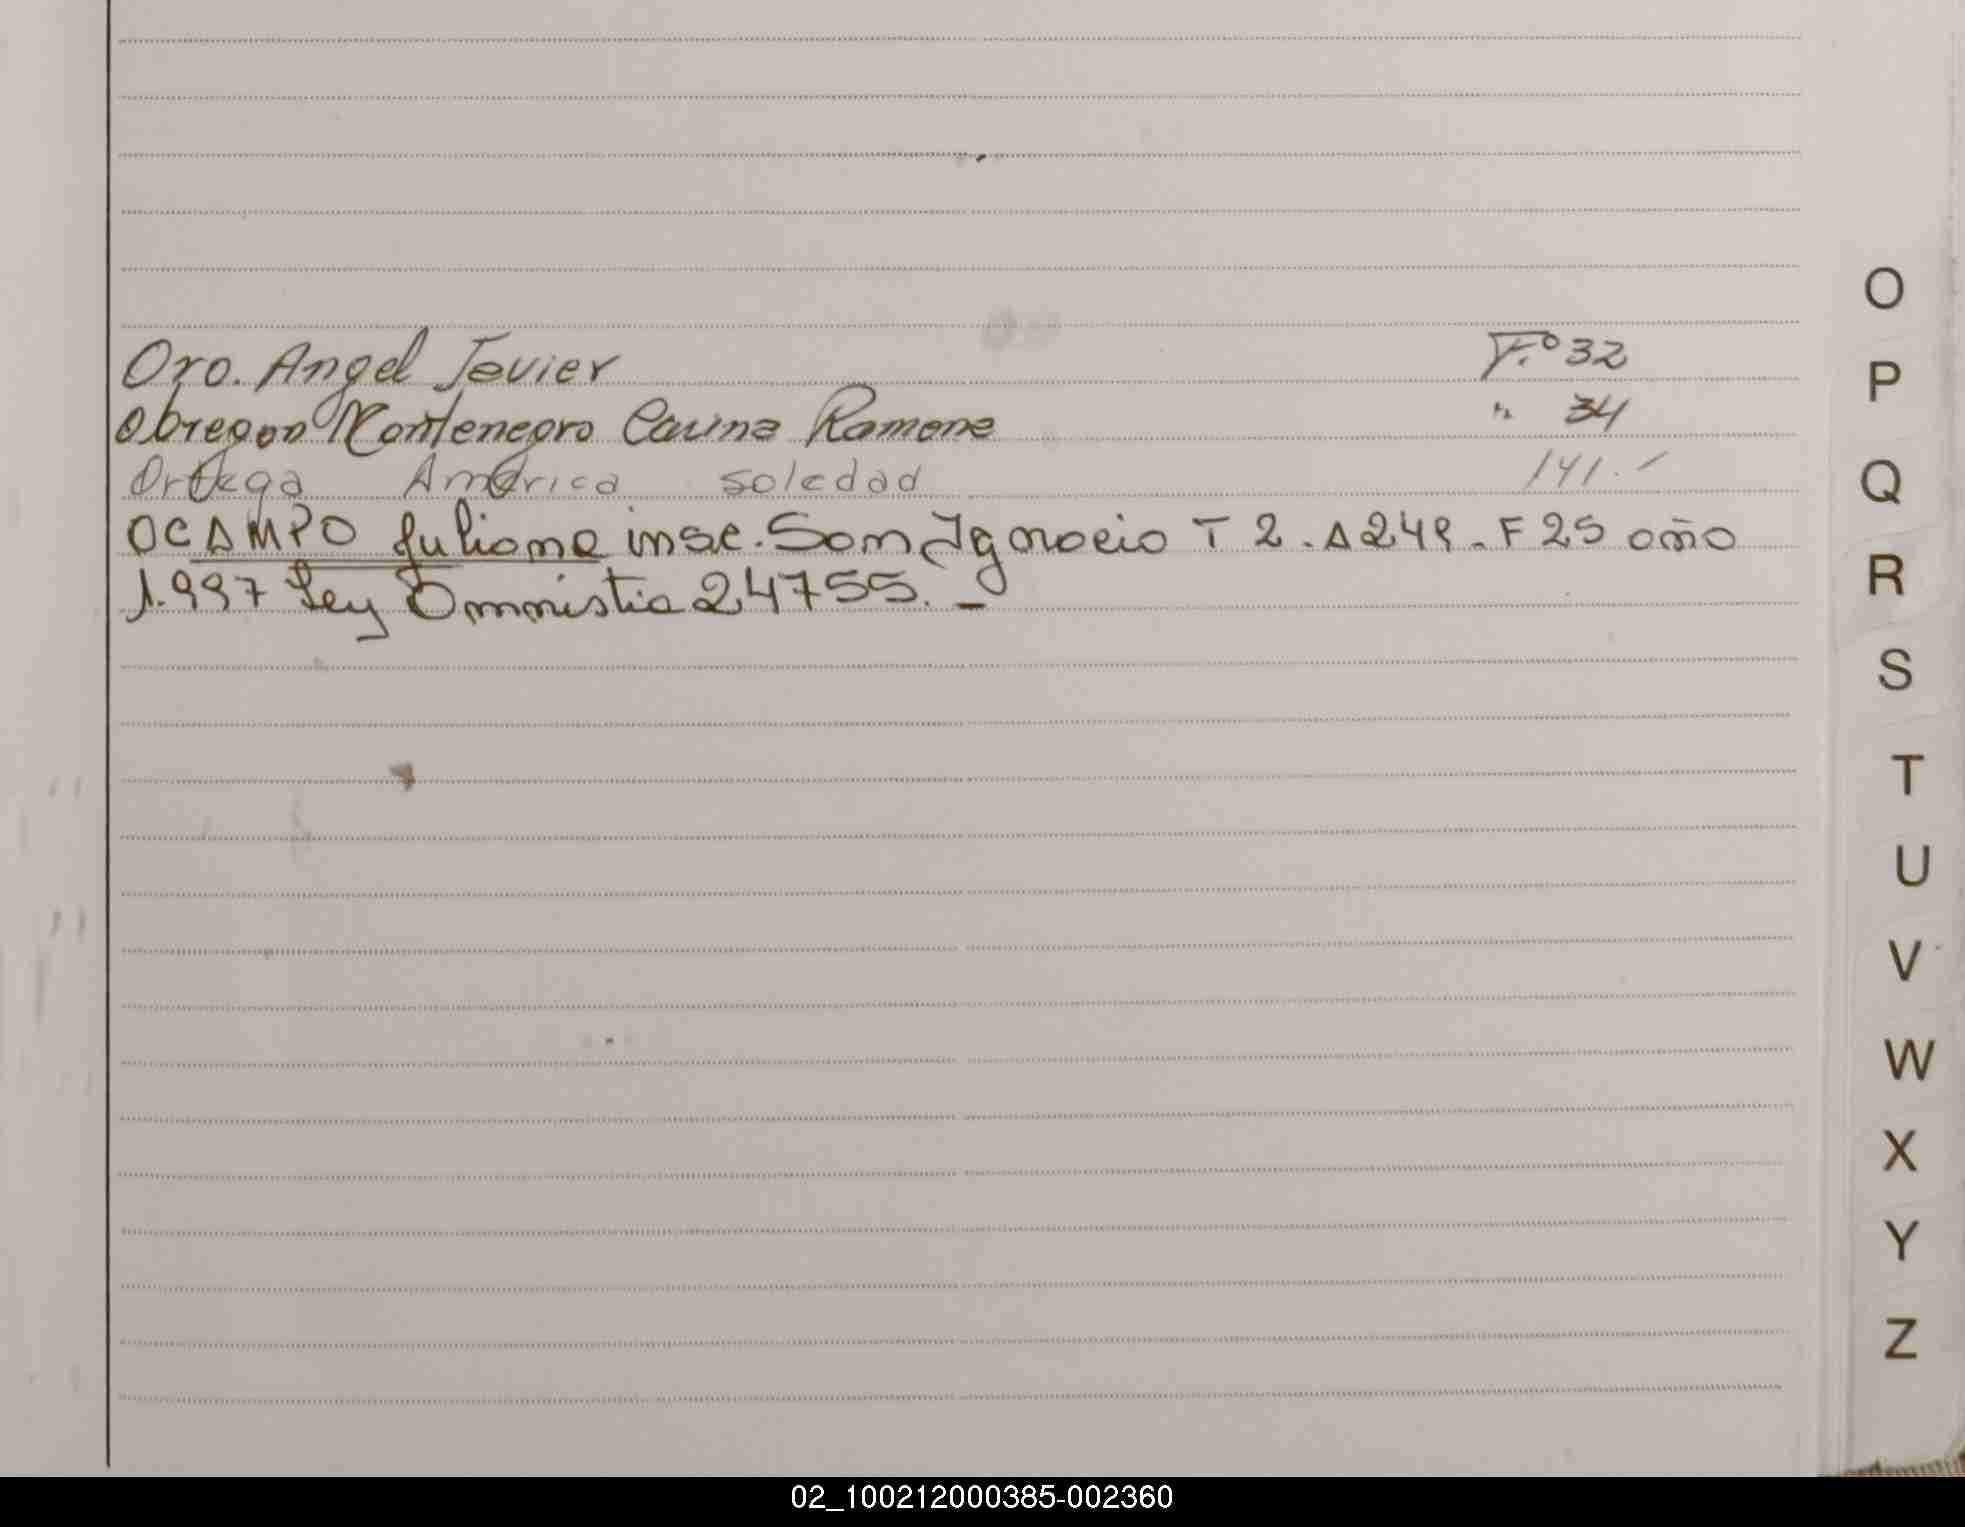 Oro. Angel Javier F.º 32
Obregon Montenegro Carina Ramona " 34
Ortega América soledad 141.-
OCAMPO Juliana insc. San Ignacio T 2. A 249. F 25 año
1.997 Ley Amnistia 24755. -
O
P
Q
R
S
T
U
V
W
X
Y
Z
02_100212000385-002360